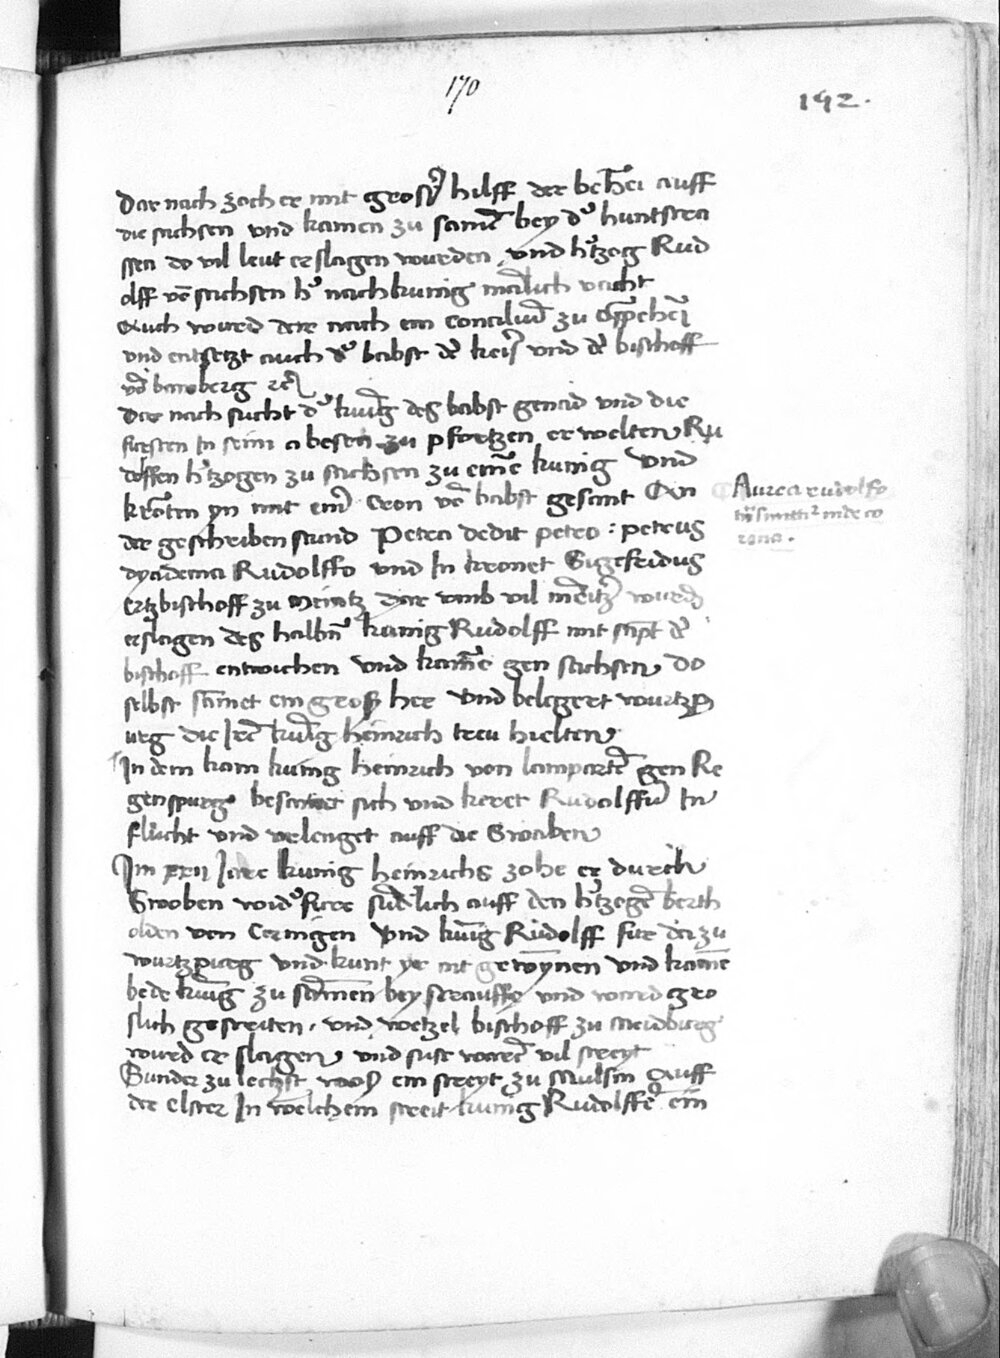 170
192.
Dar nach zoch er mit groser hilff der behē auff
die sachsen vnd kamen zu samē bey d' huntstra
ssen do vil leut erslagen wurden vnd h'tzog Rud
olff vō sachsen h' nach kunig
Auch ward dar nach ein conciliū zu
vnd entsetzt auch d' babst dē keis' vnd dē bischoff
vō bamberg rc̄
Dar nach sucht d' kunig des babst genad vnd die
fursten In seim abesen zu pfortzen erwelten Ru
dolffen h'tzogen zu sachsen zu eimē kunig vnd
krōtn yn mit eim̄ cron vō babst gesant An
der geschriben stund Petra dedit petro : petrus
dyadema Rudolffo vnd In kronet Sigefridus
ertzbischoff zu meintz dar vmb vil wurdē
erslagen des halbn̄ kunig Rudolff mit sāpt dē
bischoff entwichen vnd kamē gen sachsen do
selbst sāmet ein gros her vnd belegert wurtzp
urg die kunig heinrich treu hielten
In dem kam kunig heinrich von lampartē gen Re
genspurg besamet sich vnd keret Rudolffū In
flucht vnd verlenget auff die Swaben
Im xxii Jare kunig heinrichs zohe er durch
Swoben wid' fure auff den h'tzogē berth
olden von Ceringen vnd kunig Rudolff fur dar zu
wurtzpurg vnd kunt ye nit gewynen vnd kamē
bede kunig zu samen bey strauffe vnd ward gro
slich gestriten, vnd wetzel bischoff zu meidburg
wurd er slagen vnd sust warē vil streyt
Sunder zu letzst was ein streyt zu Auff
der elster In welchem streit kunig Rudolffē ein
Aurea rudolfo
corona.